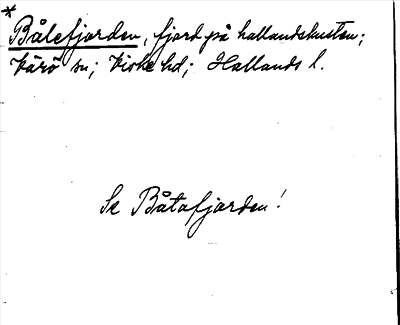 * Bålefjorden, fjord på hallandskusten;
Värö sn; Viske hd; Hallands l.
Se Båtafjorden!